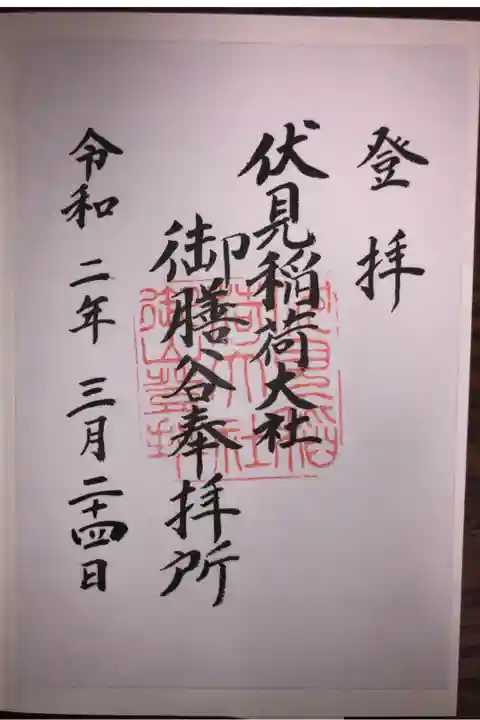 登拝
伏見稲荷大社
御膳谷奉拝所
令和二年三月二十四日